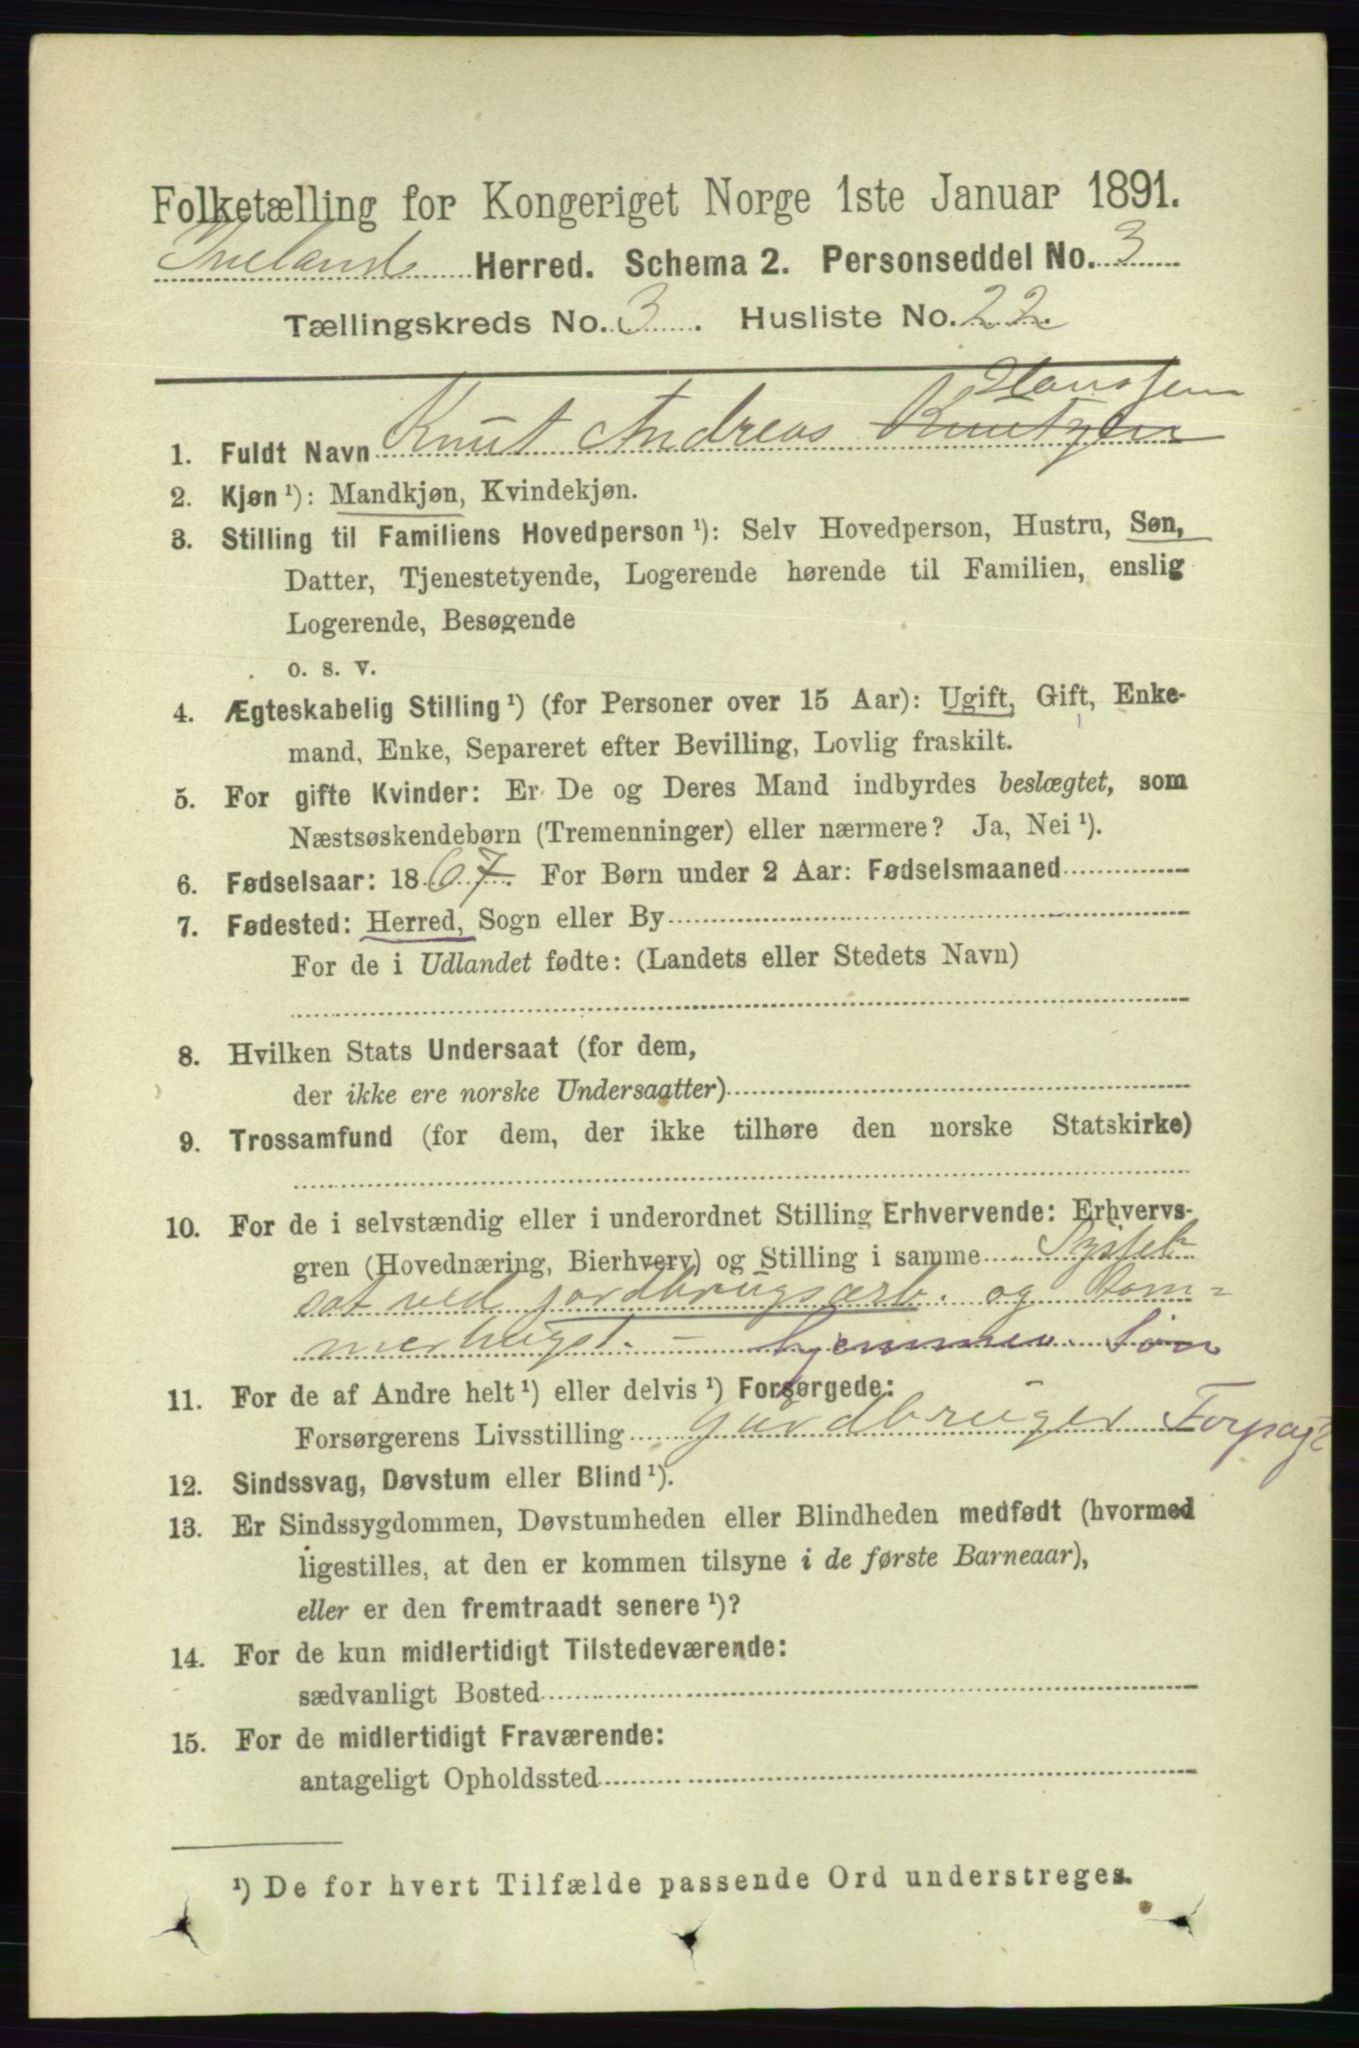 Folketælling for Kongeriget Norge 1ste Januar 1891.
Iveland Herred. Schema 2. Personseddel No. 3
Tællingskreds No. 3. Husliste No. 22.
Hanssen
1. Fuldt Navn Knut Andreas Knutzen
2. Kjøn ¹): Mandkjøn, Kvindekjøn.
3. Stilling til Familiens Hovedperson ¹): Selv Hovedperson, Hustru, Søn,
Datter, Tjenestetyende, Logerende hørende til Familien, enslig
Logerende, Besøgende
o. s. v.
4. Ægteskabelig Stilling ¹) (for Personer over 15 Aar): Ugift, Gift, Enke-
mand, Enke, Separeret efter Bevilling, Lovlig fraskilt.
5. For gifte Kvinder: Er De og Deres Mand indbyrdes beslægtet, som
Næstsøskendebørn (Tremenninger) eller nærmere? Ja, Nei ¹).
6. Fødselsaar: 1867. For Børn under 2 Aar: Fødselsmaaned
7. Fødested: Herred, Sogn eller By
For de i Udlandet fødte: (Landets eller Stedets Navn)
8. Hvilken Stats Undersaat (for dem,
der ikke ere norske Undersaatter)
9. Trossamfund (for dem, der ikke tilhøre den norske Statskirke)
10. For de i selvstændig eller i underordnet Stilling Erhvervende: Erhvervs-
gren (Hovednæring, Bierhverv) og Stilling i samme Sysselsat
ved jordbrugsarb. og tøm-
merhugst. - hjemmev. Søn
11. For de af Andre helt ¹) eller delvis ¹) Forsørgede:
Forsørgerens Livsstilling Gårdbruger Forpagt
12. Sindssvag, Døvstum eller Blind ¹).
13. Er Sindssygdommen, Døvstumheden eller Blindheden medfødt (hvormed
ligestilles, at den er kommen tilsyne i de første Barneaar),
eller er den fremtraadt senere ¹)?
14. For de kun midlertidigt Tilstedeværende:
sædvanligt Bosted
15. For de midlertidigt Fraværende:
antageligt Opholdssted
¹) De for hvert Tilfælde passende Ord understreges.